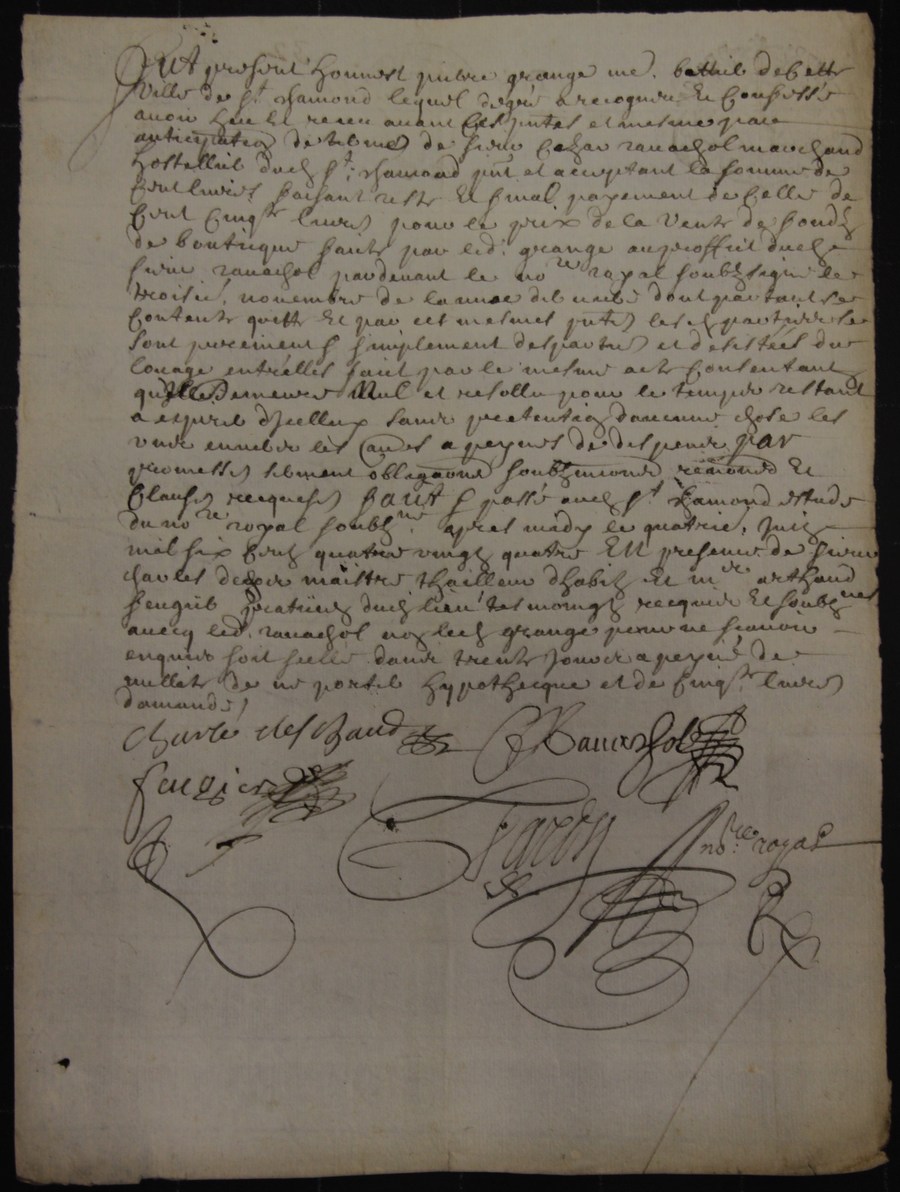 Fut present honnest pierre grange me. battie de cette
ville de St. chamond lequel de gré a recogneu Et Confessé
avoir heu et receu avant Ces pntes et mesme par
anticipation de de sieur Cezar ravachol marchand
hostellie dud. St. chamond pnt et acceptant la somme de
Cent livres faisant reste Et final payement de Celle de
Cent Cinqte livres pour le prix de la vente de fondz
de bouticque faicte par led. grange au proffit dud.
sieur ravachol pardevant le nore royal soubzsigné le
troisie. novembre de lannee dont partant se
Contente quitte Et par ces mesmes pntes les partyes se
sont purement & simplement despartie et desistées du
louage entrelles faict par le mesme acte Consentant
quille Demeure Nul et resollu pour le temps restant
a expire dIcelluy sans pretention daucune chose les
uns envers les autres a peynes de despens par
promesses serment obligations soubzmions renons Et
Clauses recquises faict & passé aud. St. chamond estude
du nore royal soubzne apres midy le quatrie. Juin
mil six Cent quatre vingt quatre En presence de sieur
charles maistre thailleur dhabit Et mre arthaud
feugie praticien dud. lieu tesmoingz recquis Et soubznes
avecq led. ravachol non led. grange pour ne scavoir
enquis soit scellé dans trente Jours a peyne de
nullité de ne porte hypothecque et de Cinqte livres
damande.
Charle desChaud CRavachol
feugier
Fardy nore. royal